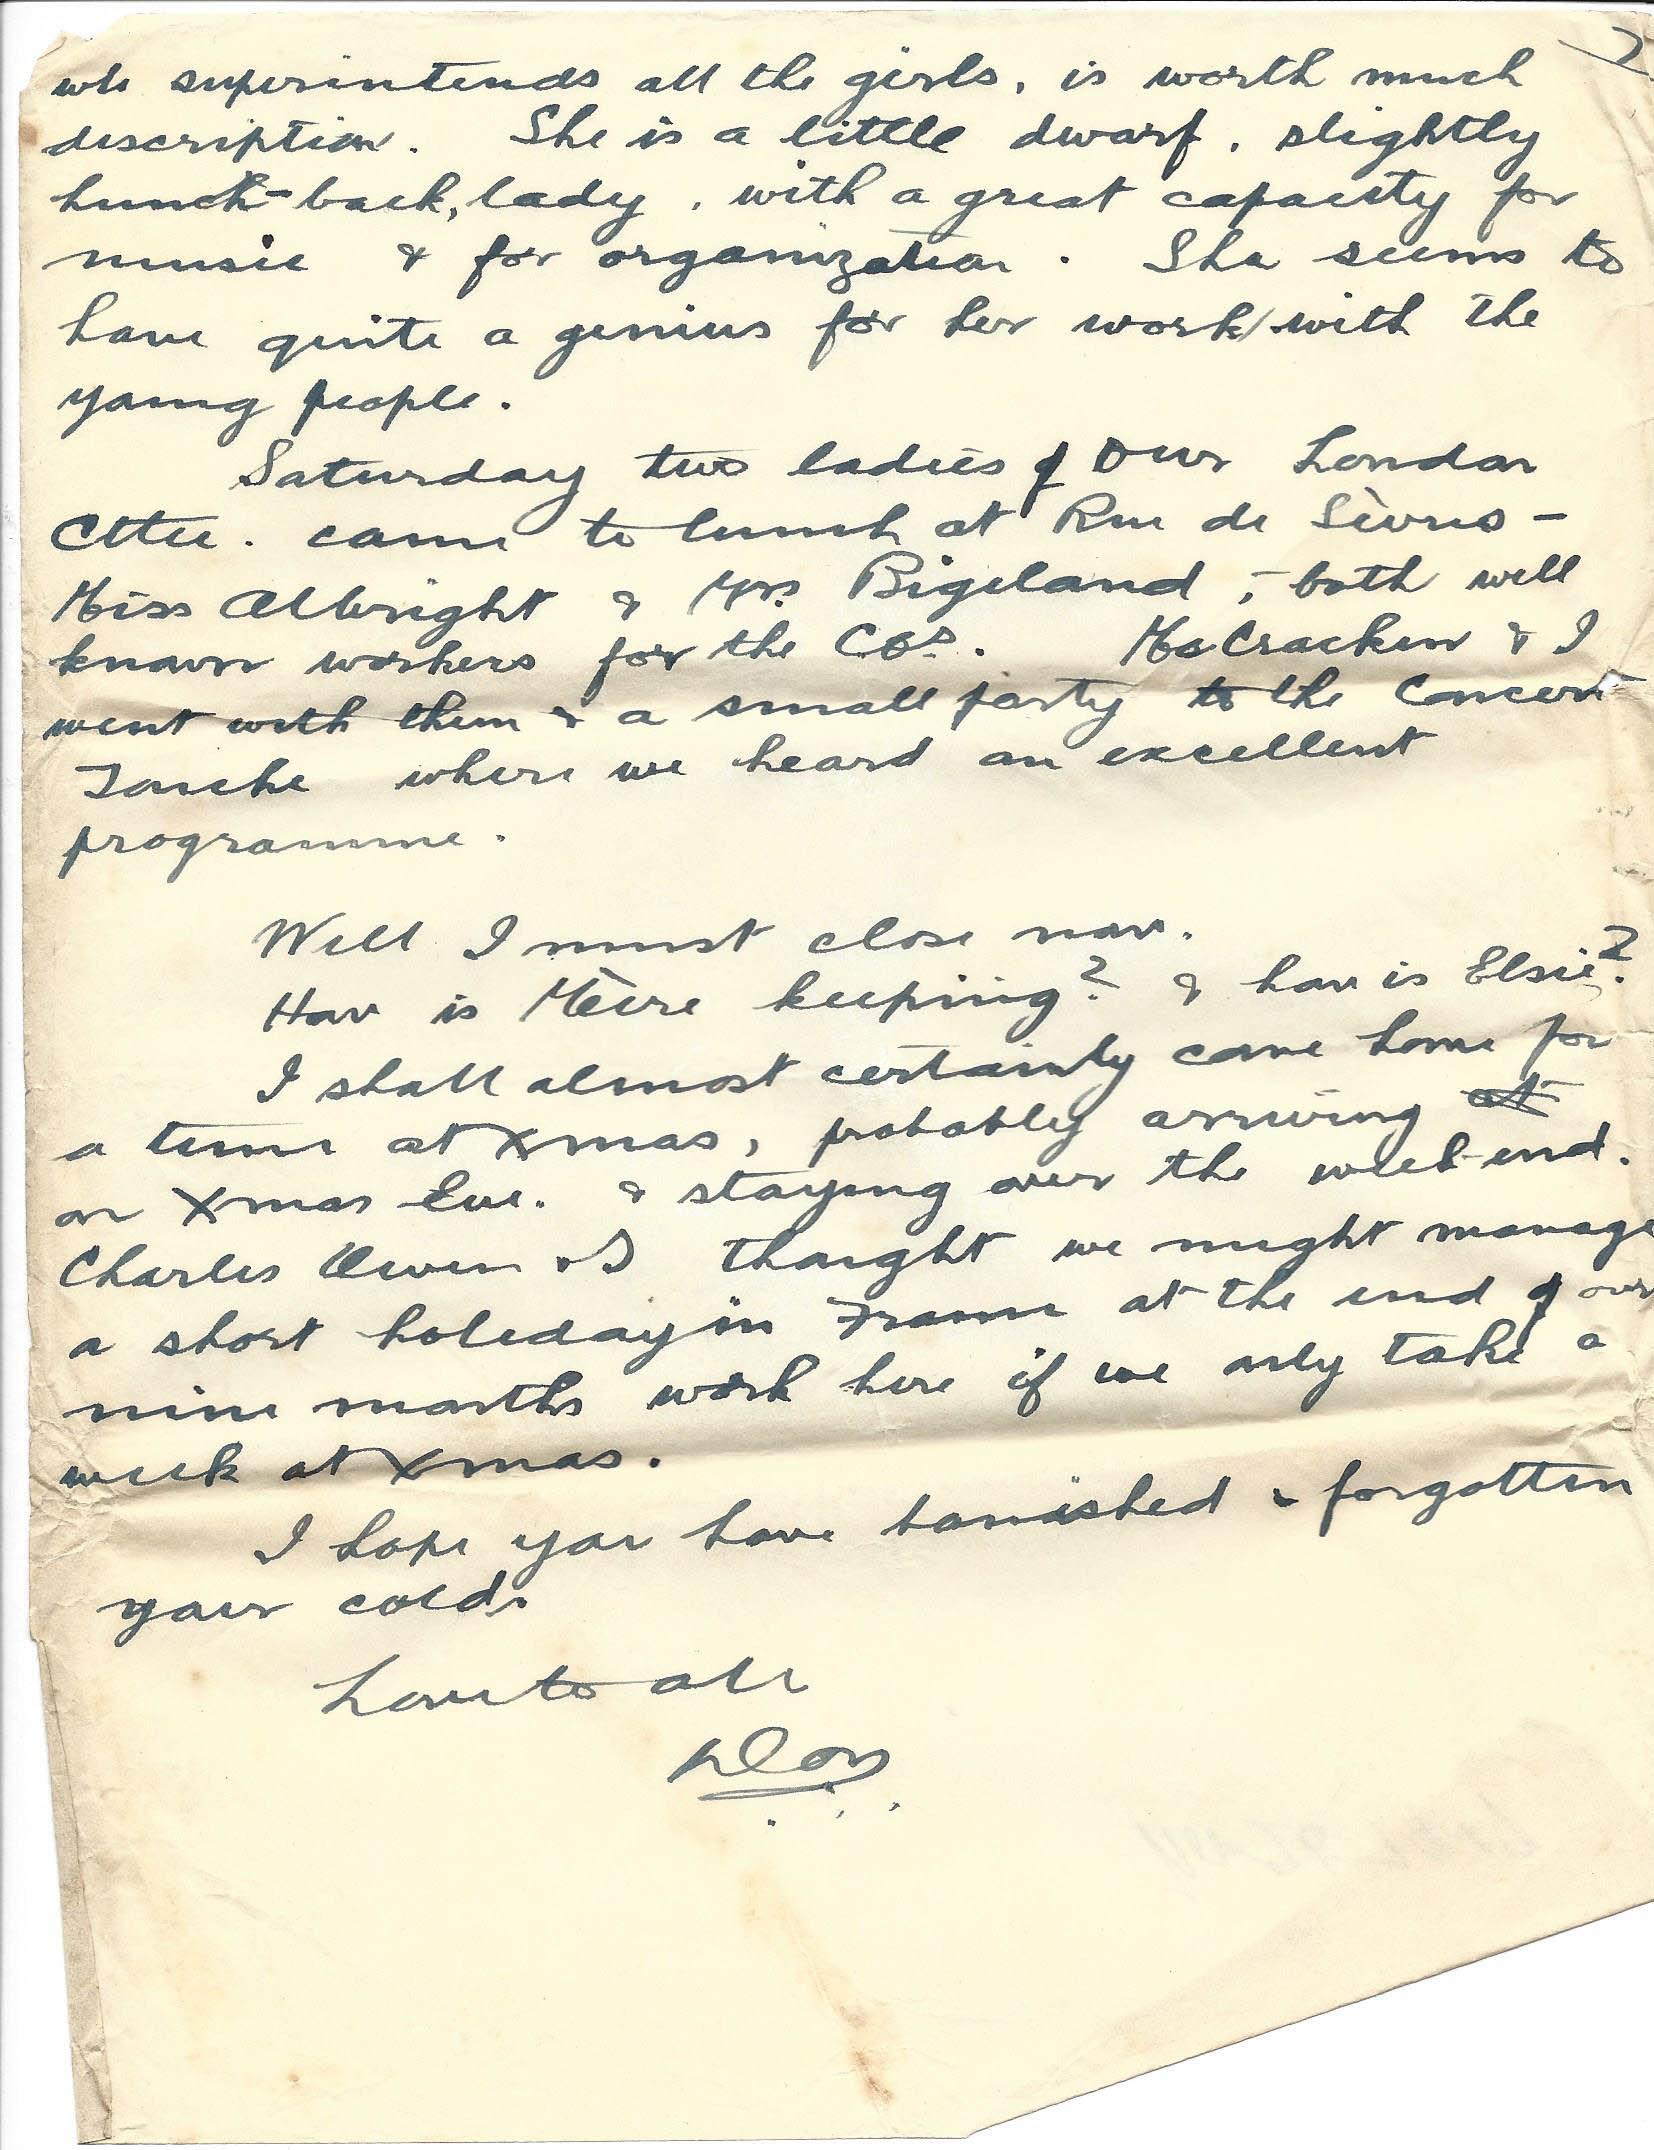 7
who superintends all the girls, is worth much
description. She is a little dwarf, slightly
hunch-back, lady, with a great capacity for
music & for organization. She seems to
have quite a genius for her work with the
young people.
Saturday two ladies of our London
Cttee. came to lunch at Rue de Sèvres -
Miss Albright & Mrs Bigeland, - both well
known workers for the COs. McCracken & I
went with them & a small party to the Concert
Touche where we heard an excellent
programme.
Well I must close now.
How is Mère keeping? & how is Elsie?
I shall almost certainly come home for
a time at Xmas, probably arriving at
on Xmas Eve. & staying over the week-end.
Charles Owen & I thought we might manage
a short holiday in France at the end of our
nine months work here if we only take a
week at Xmas.
I hope you have banished & forgotten
your cold.
Love to all
Don